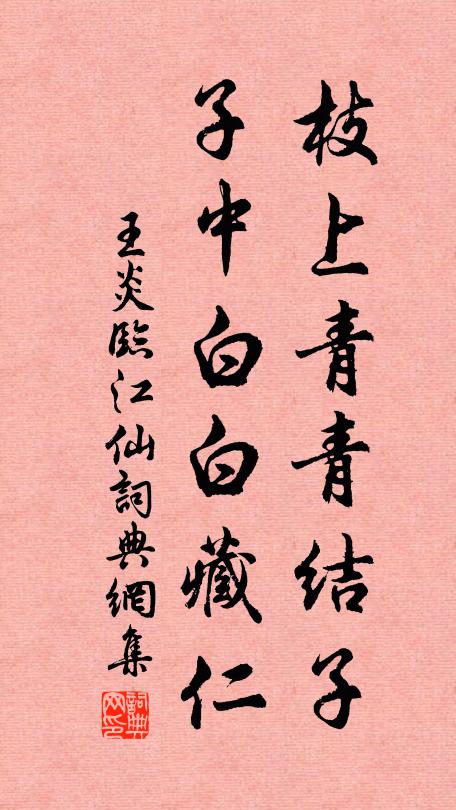 枝上青青结子
子中白白藏仁
王炎臨江仙詞典網集
詞典網印